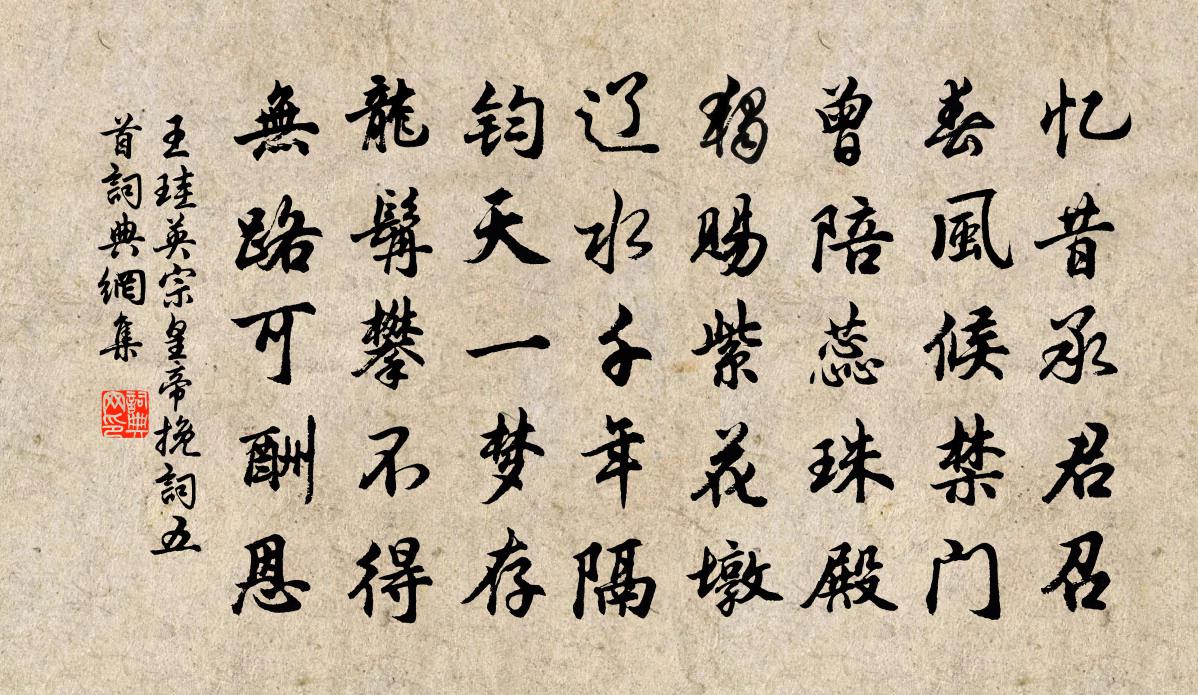 忆昔承君召
春風候禁门
曾陪蕊珠殿
独赐紫花墩
辽水千年隔
钧天一梦存
龍髯攀不得
無路可酬恩
王珪英宗皇帝挽詞五
首詞典網集
詞典
网印